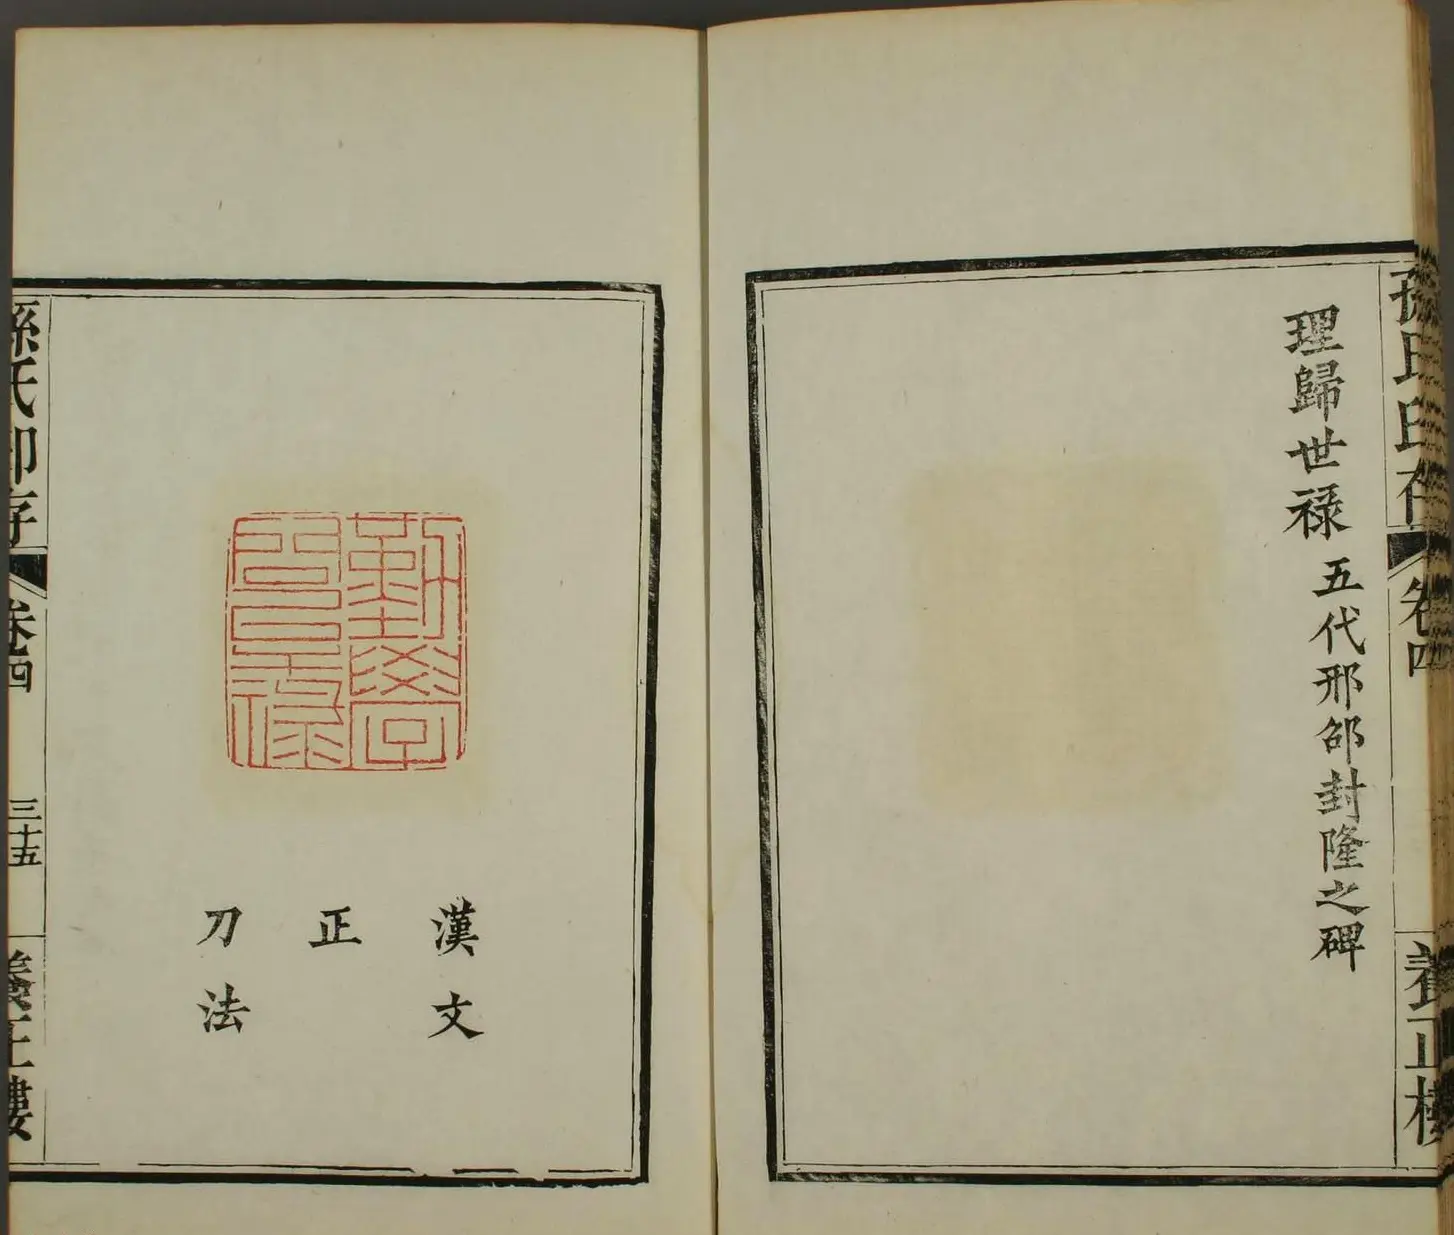 孫氏印存 卷四 養正樓
理歸世禄 五代邢邵封隆之碑
勤學
漢文
正
刀法
孫氏印存 卷四 三十五 養正樓